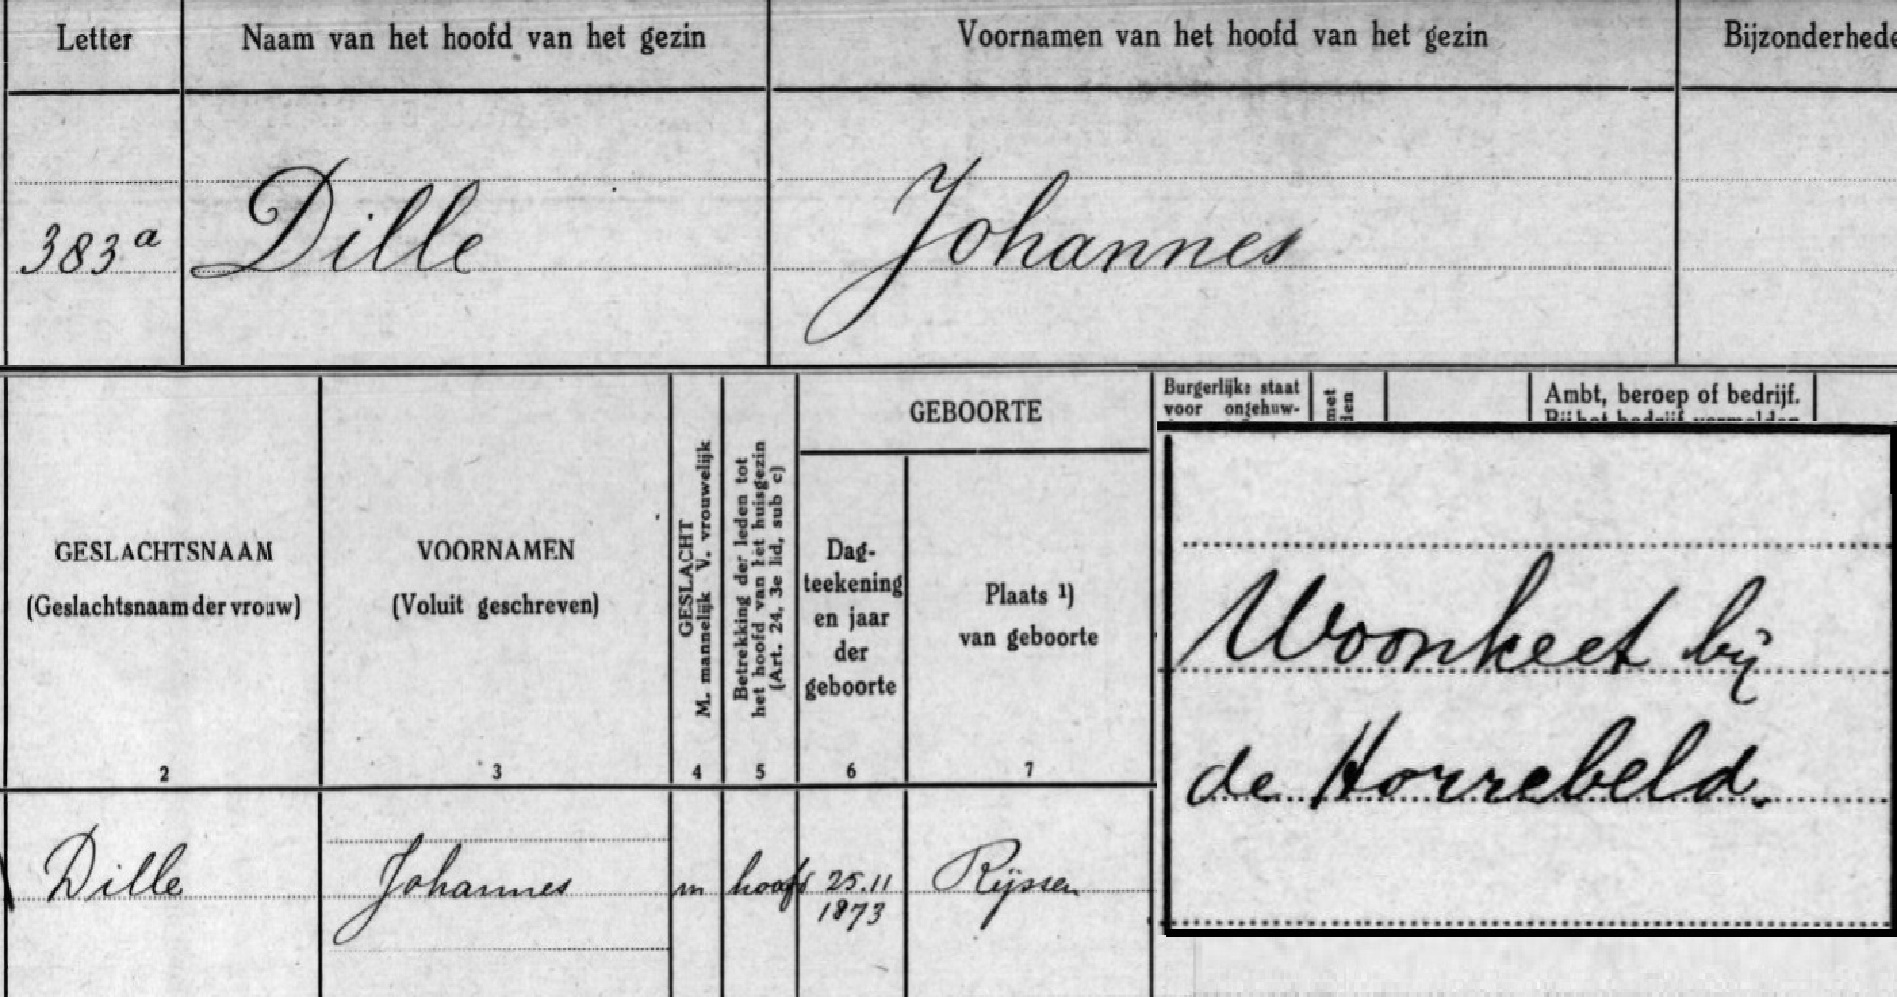 Letter
Naam van het hoofd van het gezin
Voornamen van het hoofd van het gezin
Bijzonderhede
383a
Dille
Johannes
GESLACHTSNAAM
(Geslachtsnaam der vrouw)
2
VOORNAMEN
(Voluit geschreven)
3
GESLACHT
M. mannelijk V. vrouwelijk
4
Betrekking der leden tot
het hoofd van het huisgezin
(Art. 24, 3e lid, sub c)
5
GEBOORTE
Dag-
teekening
en jaar
der
geboorte
6
Plaats ¹)
van geboorte
7
Burgerlijke staat
voor ongehuw-
met
den
Ambt, beroep of bedrijf.
Bij het bedrijf vermelden
Woonkeet bij
de Horrebeld.
Dille
Johannes
m
hoofd
25.11
1873
Rijssen